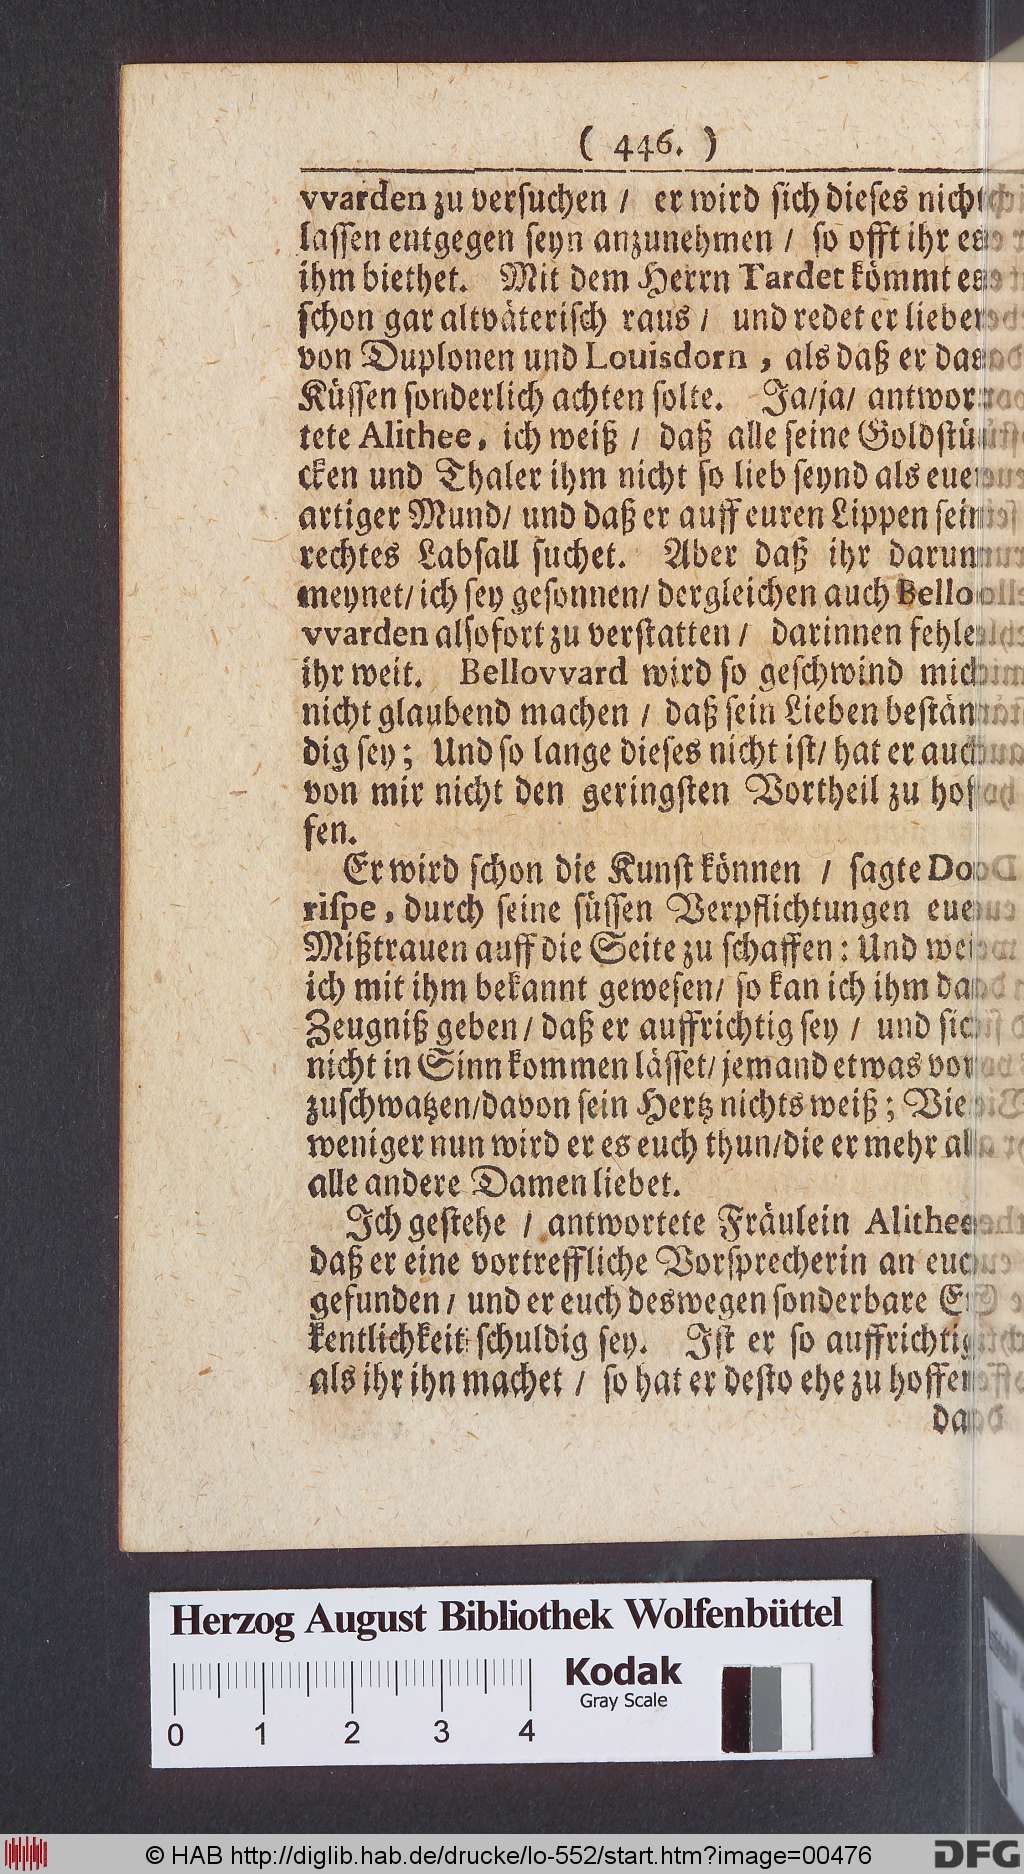 ( 446. )
vvarden zu versuchen / er wird sich dieses nicht
lassen entgegen seyn anzunehmen / so offt ihr es
ihm biethet. Mit dem Herrn Tardet kömmt es
schon gar altväterisch raus / und redet er lieber
von Duplonen und Louisdorn, als daß er das
Küssen sonderlich achten solte. Ja/ja/ antwor-
tete Alithee, ich weiß / daß alle seine Goldstü-
cken und Thaler ihm nicht so lieb seynd als euer
artiger Mund/ und daß er auff euren Lippen sein
rechtes Labsall suchet. Aber daß ihr darum
meynet/ ich sey gesonnen/ dergleichen auch Bello-
vvarden alsofort zu verstatten / darinnen fehlet
ihr weit. Bellovvard wird so geschwind mich
nicht glaubend machen / daß sein Lieben bestän-
dig sey; Und so lange dieses nicht ist/ hat er auch
von mir nicht den geringsten Vortheil zu hof-
fen.
Er wird schon die Kunst können / sagte Do-
rispe, durch seine süssen Verpflichtungen euer
Mißtrauen auff die Seite zu schaffen: Und weil
ich mit ihm bekannt gewesen/ so kan ich ihm das
Zeugniß geben/ daß er auffrichtig sey / und sich
nicht in Sinn kommen lässet/ jemand etwas vor-
zuschwatzen/davon sein Hertz nichts weiß; Viel
weniger nun wird er es euch thun/die er mehr als
alle andere Damen liebet.
Ich gestehe / antwortete Fräulein Alithee
daß er eine vortreffliche Vorsprecherin an euch
gefunden/ und er euch deswegen sonderbare Er-
kentlichkeit schuldig sey. Ist er so auffrichtig
als ihr ihn machet / so hat er desto ehe zu hoffen
Herzog August Bibliothek Wolfenbüttel
0 1 2 3 4
Kodak
Gray Scale
© HAB http://diglib.hab.de/drucke/lo-552/start.htm?image=00476
DFG